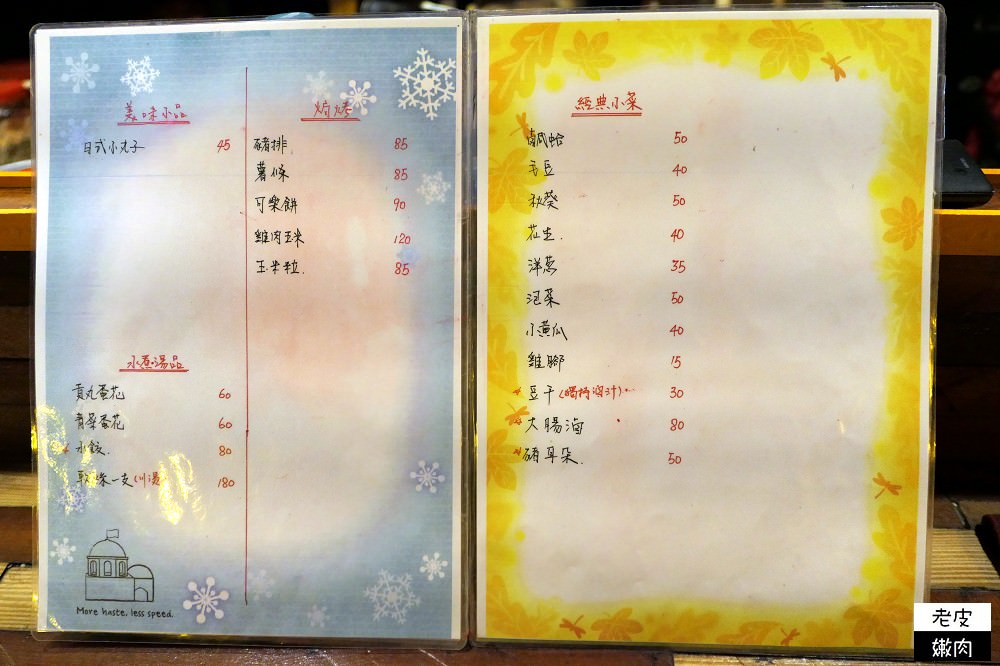 美味小品
日式小丸子 45
焗烤
豬排. 85
薯條 85
可樂餅 90
雞肉玉米 120
玉米粒. 85
水煮湯品
貢丸蛋花 60
青菜蛋花 60
水餃. 80
一支(川湯) 180
More haste, less speed.
經典小菜
鹹蛤 50
毛豆 40
秋葵 50
花生. 40
洋蔥 35
泡菜 50
小黃瓜 40
雞腳 15
豆干 30
大腸滷 80
豬耳朵. 50
老皮
嫩肉